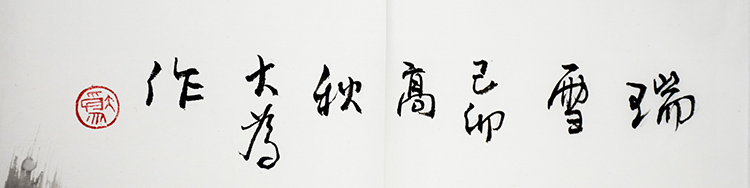 瑞雪己卯高秋大为作
大為